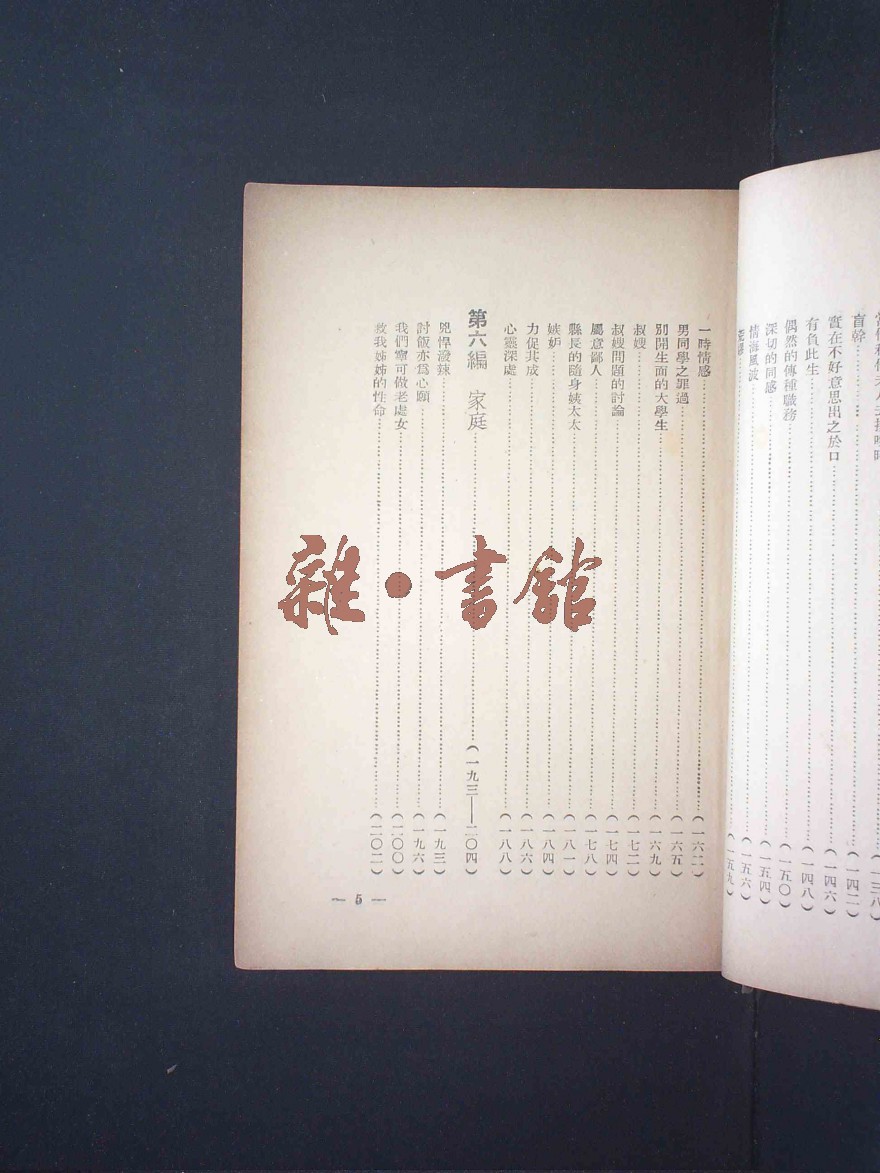 盲幹……（一四二）
實在不好意思出之於口……（一四六）
有負此生……（一四八）
偶然的傳種職務……（一五〇）
深切的同感……（一五四）
情海風波……（一五六）
……（一五九）
一時情感……（一六二）
男同學之罪過……（一六五）
別開生面的大學生……（一六九）
叔嫂……（一七二）
叔嫂問題的討論……（一七四）
屬意鄙人……（一七八）
縣長的隨身姨太太……（一八一）
嫉妒……（一八四）
力促其成……（一八六）
心靈深處……（一八八）
第六編 家庭……（一九三——二〇四）
兇悍潑辣……（一九三）
討飯亦爲心願……（一九六）
我們寧可做老處女……（二〇〇）
救我姊姊的性命……（二〇二）
— 5 —
雜·書館